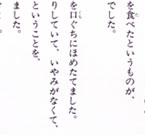 を食べたというものが、
でした。
を口ぐちにほめたてました。
りしていて、いやみがなくて、
ということを、
ました。